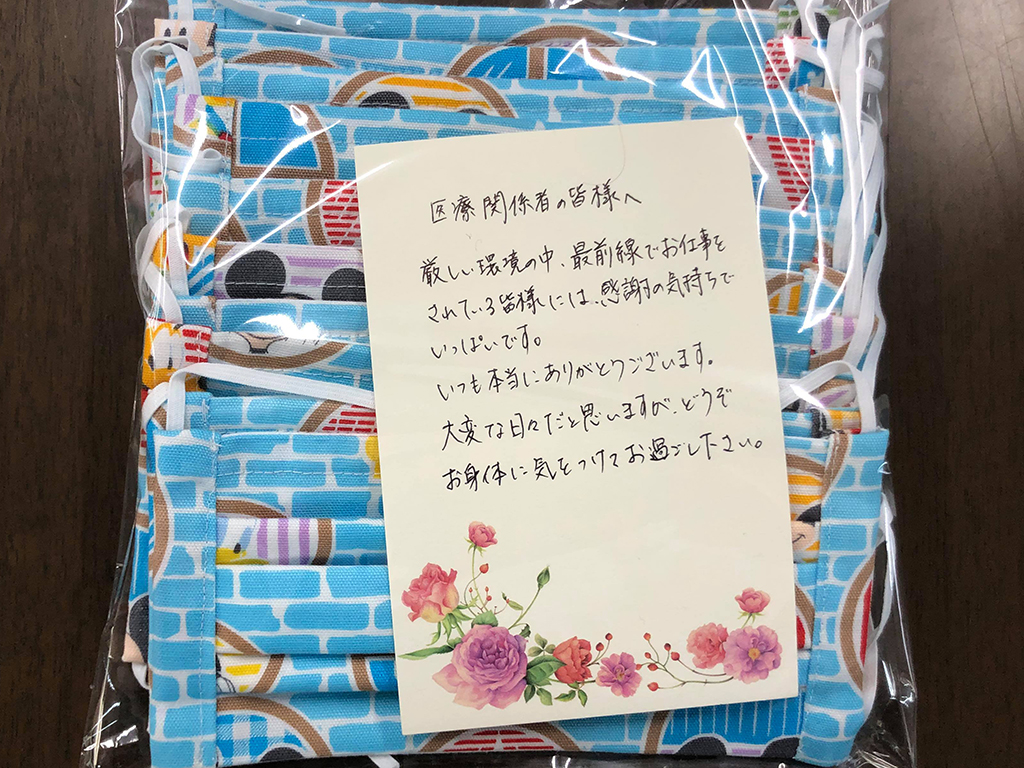 医療関係者の皆様へ
厳しい環境の中、最前線でお仕事を
されている皆様には、感謝の気持ちで
いっぱいです。
いつも本当にありがとうございます。
大変な日々だと思いますが、どうぞ
お身体に気をつけてお過ごし下さい。